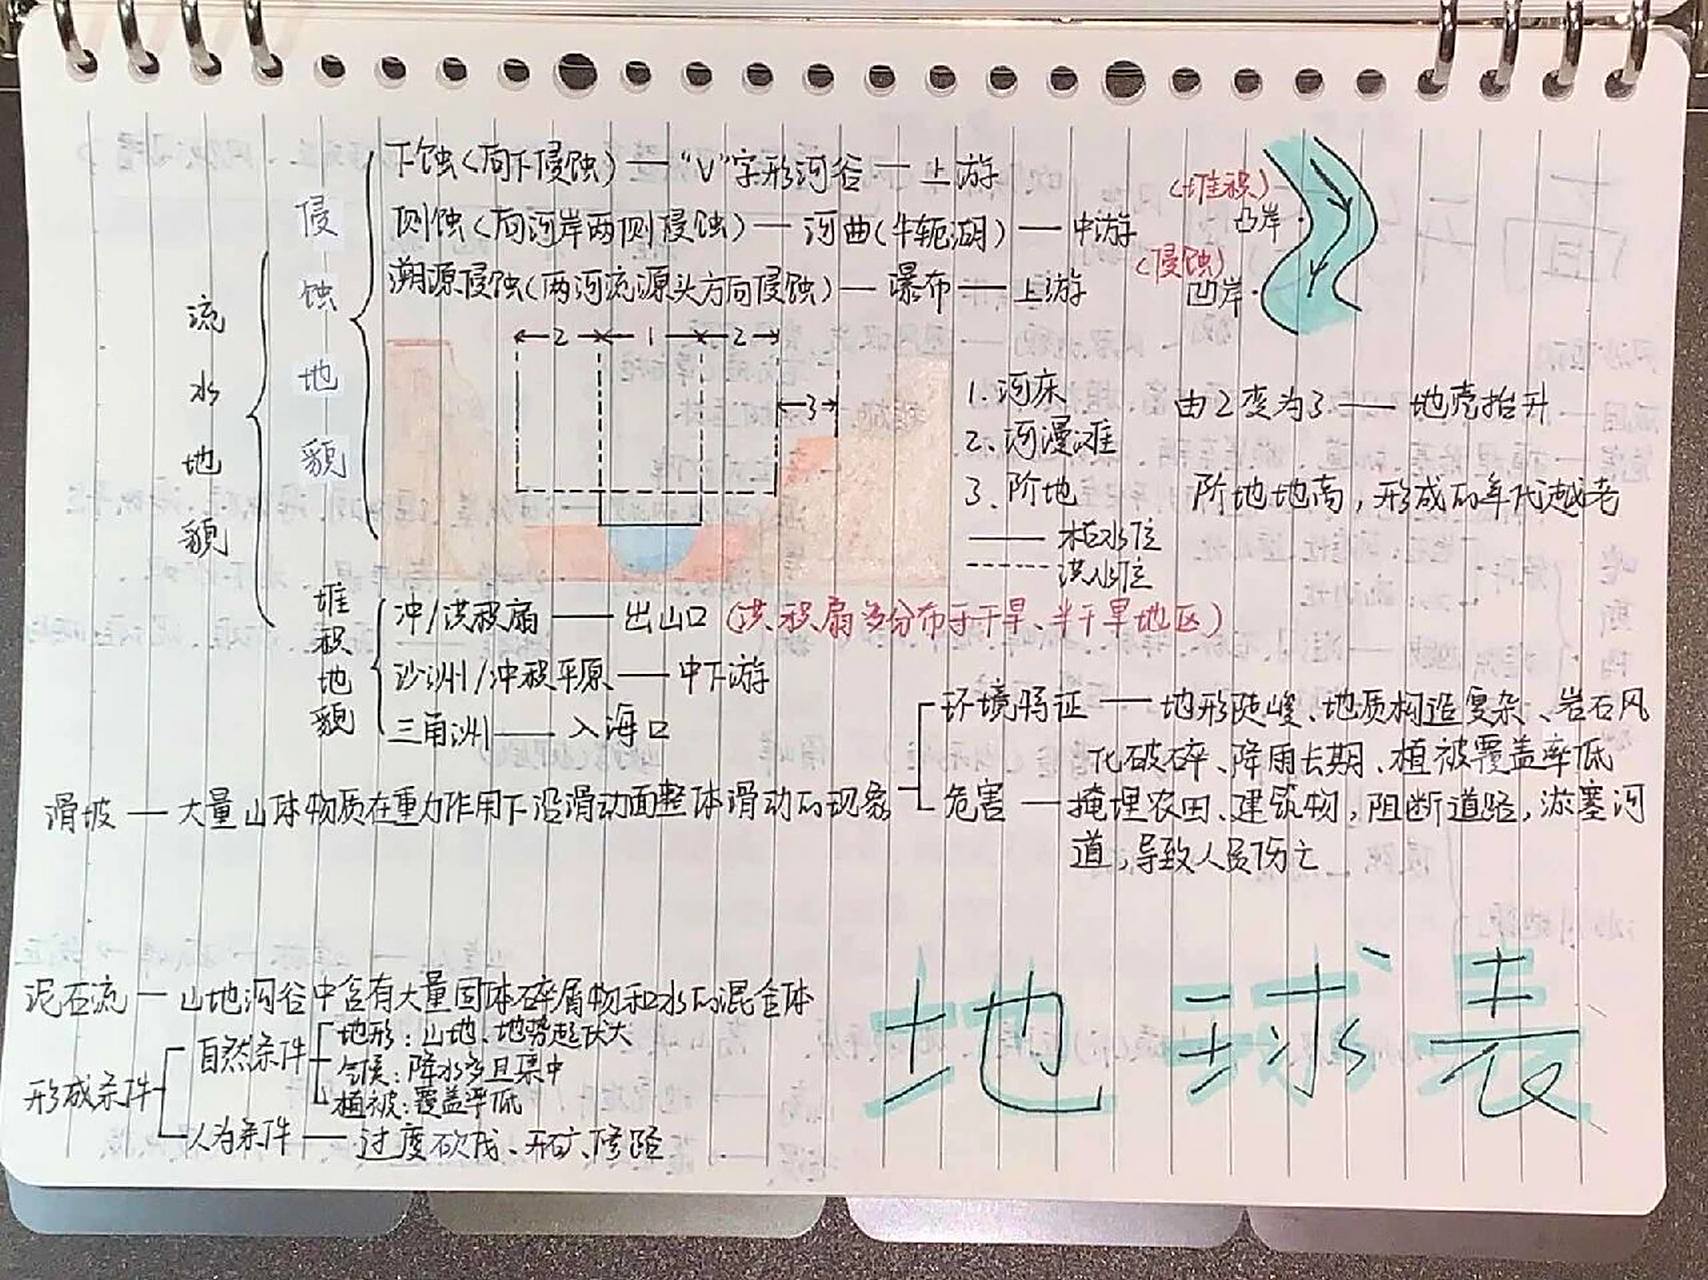 流水地貌
侵蚀地貌
下蚀(向下侵蚀)——“V”字形河谷——上游
侧蚀(向河岸两侧侵蚀)——河曲(牛轭湖)——中游
溯源侵蚀(向河流源头方向侵蚀)——瀑布——上游
(堆积)
凸岸
(侵蚀)
凹岸
2 1 2
3
1.河床
2.河漫滩
3.阶地
由2变为3——地壳抬升
阶地地高,形成的年代越老
枯水位
洪水位
堆积地貌
冲/洪积扇——出山口(洪积扇多分布于干旱、半干旱地区)
沙洲/冲积平原——中下游
三角洲——入海口
滑坡——大量山体物质在重力作用下沿滑动面整体滑动的现象
环境特征——地形陡峻、地质构造复杂、岩石风
化破碎、降雨长期、植被覆盖率低
危害——掩埋农田、建筑物,阻断道路,淤塞河
道,导致人员伤亡
泥石流——山地沟谷中含有大量固体碎屑物和水的混合体
形成条件
自然条件
地形:山地、地势起伏大
气候:降水多且集中
植被:覆盖率低
人为条件——过度砍伐、开矿、修路
地球表